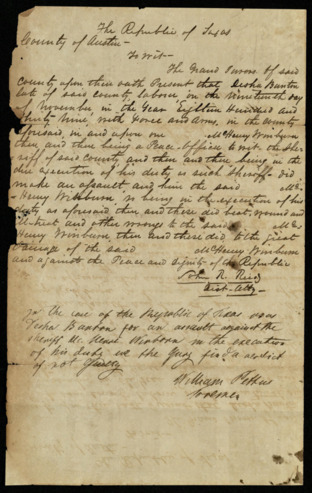 The Republic of Texas
County of Austin
To wit
The Grand Jurors of said
County upon their oath Present that Desha Bunton
late of said county laborer on the nineteenth day
of November in the Year Eighteen Hundred and
Thirty Nine with Force and arms, in the county
aforesaid, in and upon one McHenry Winburn
then and there being a Peace Officer to wit the She-
riff of said County and then and there being in the
due execution of his duty as such Sheriff did
make an assault, and him the said Mc
Henry Winburn so being in the execution of his
duty as aforesaid then and there did beat, wound and
ill-treat and other wrongs to the said Mc
Henry Winburn then and there did to the great
Damage of the said McHenry Winburn
and against the Peace and dignity of the Republic
R. Reid
Dist. Atty
In the case of the Republic of Texas
Desha Bunton for an assault against the
Sheriff Mc Henry Winborn in the execution
of his duty we the Jury find a verdict
of not Guilty
William Pettus
Foreman